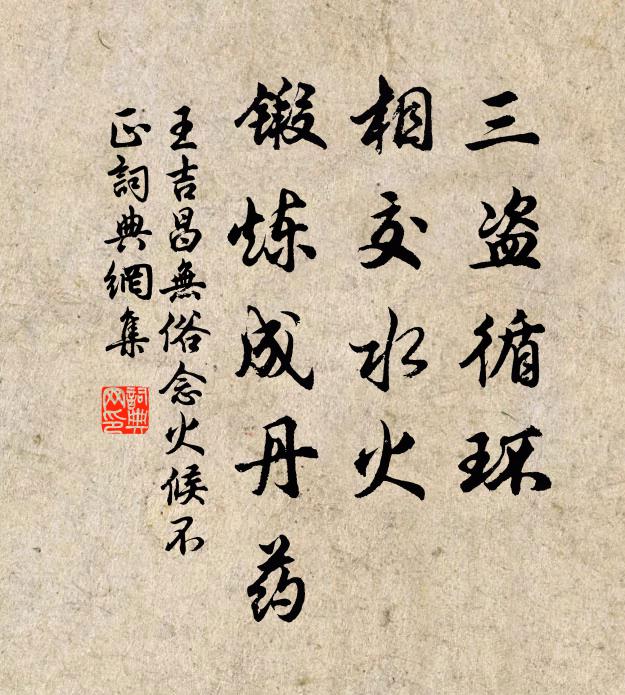 三盗循环
相交水火
锻炼成丹药
王吉昌無俗念火候不
正詞典網集
詞典
网印